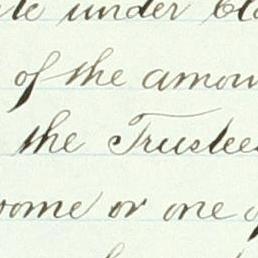 under
of the amoun
the Trustee
or one